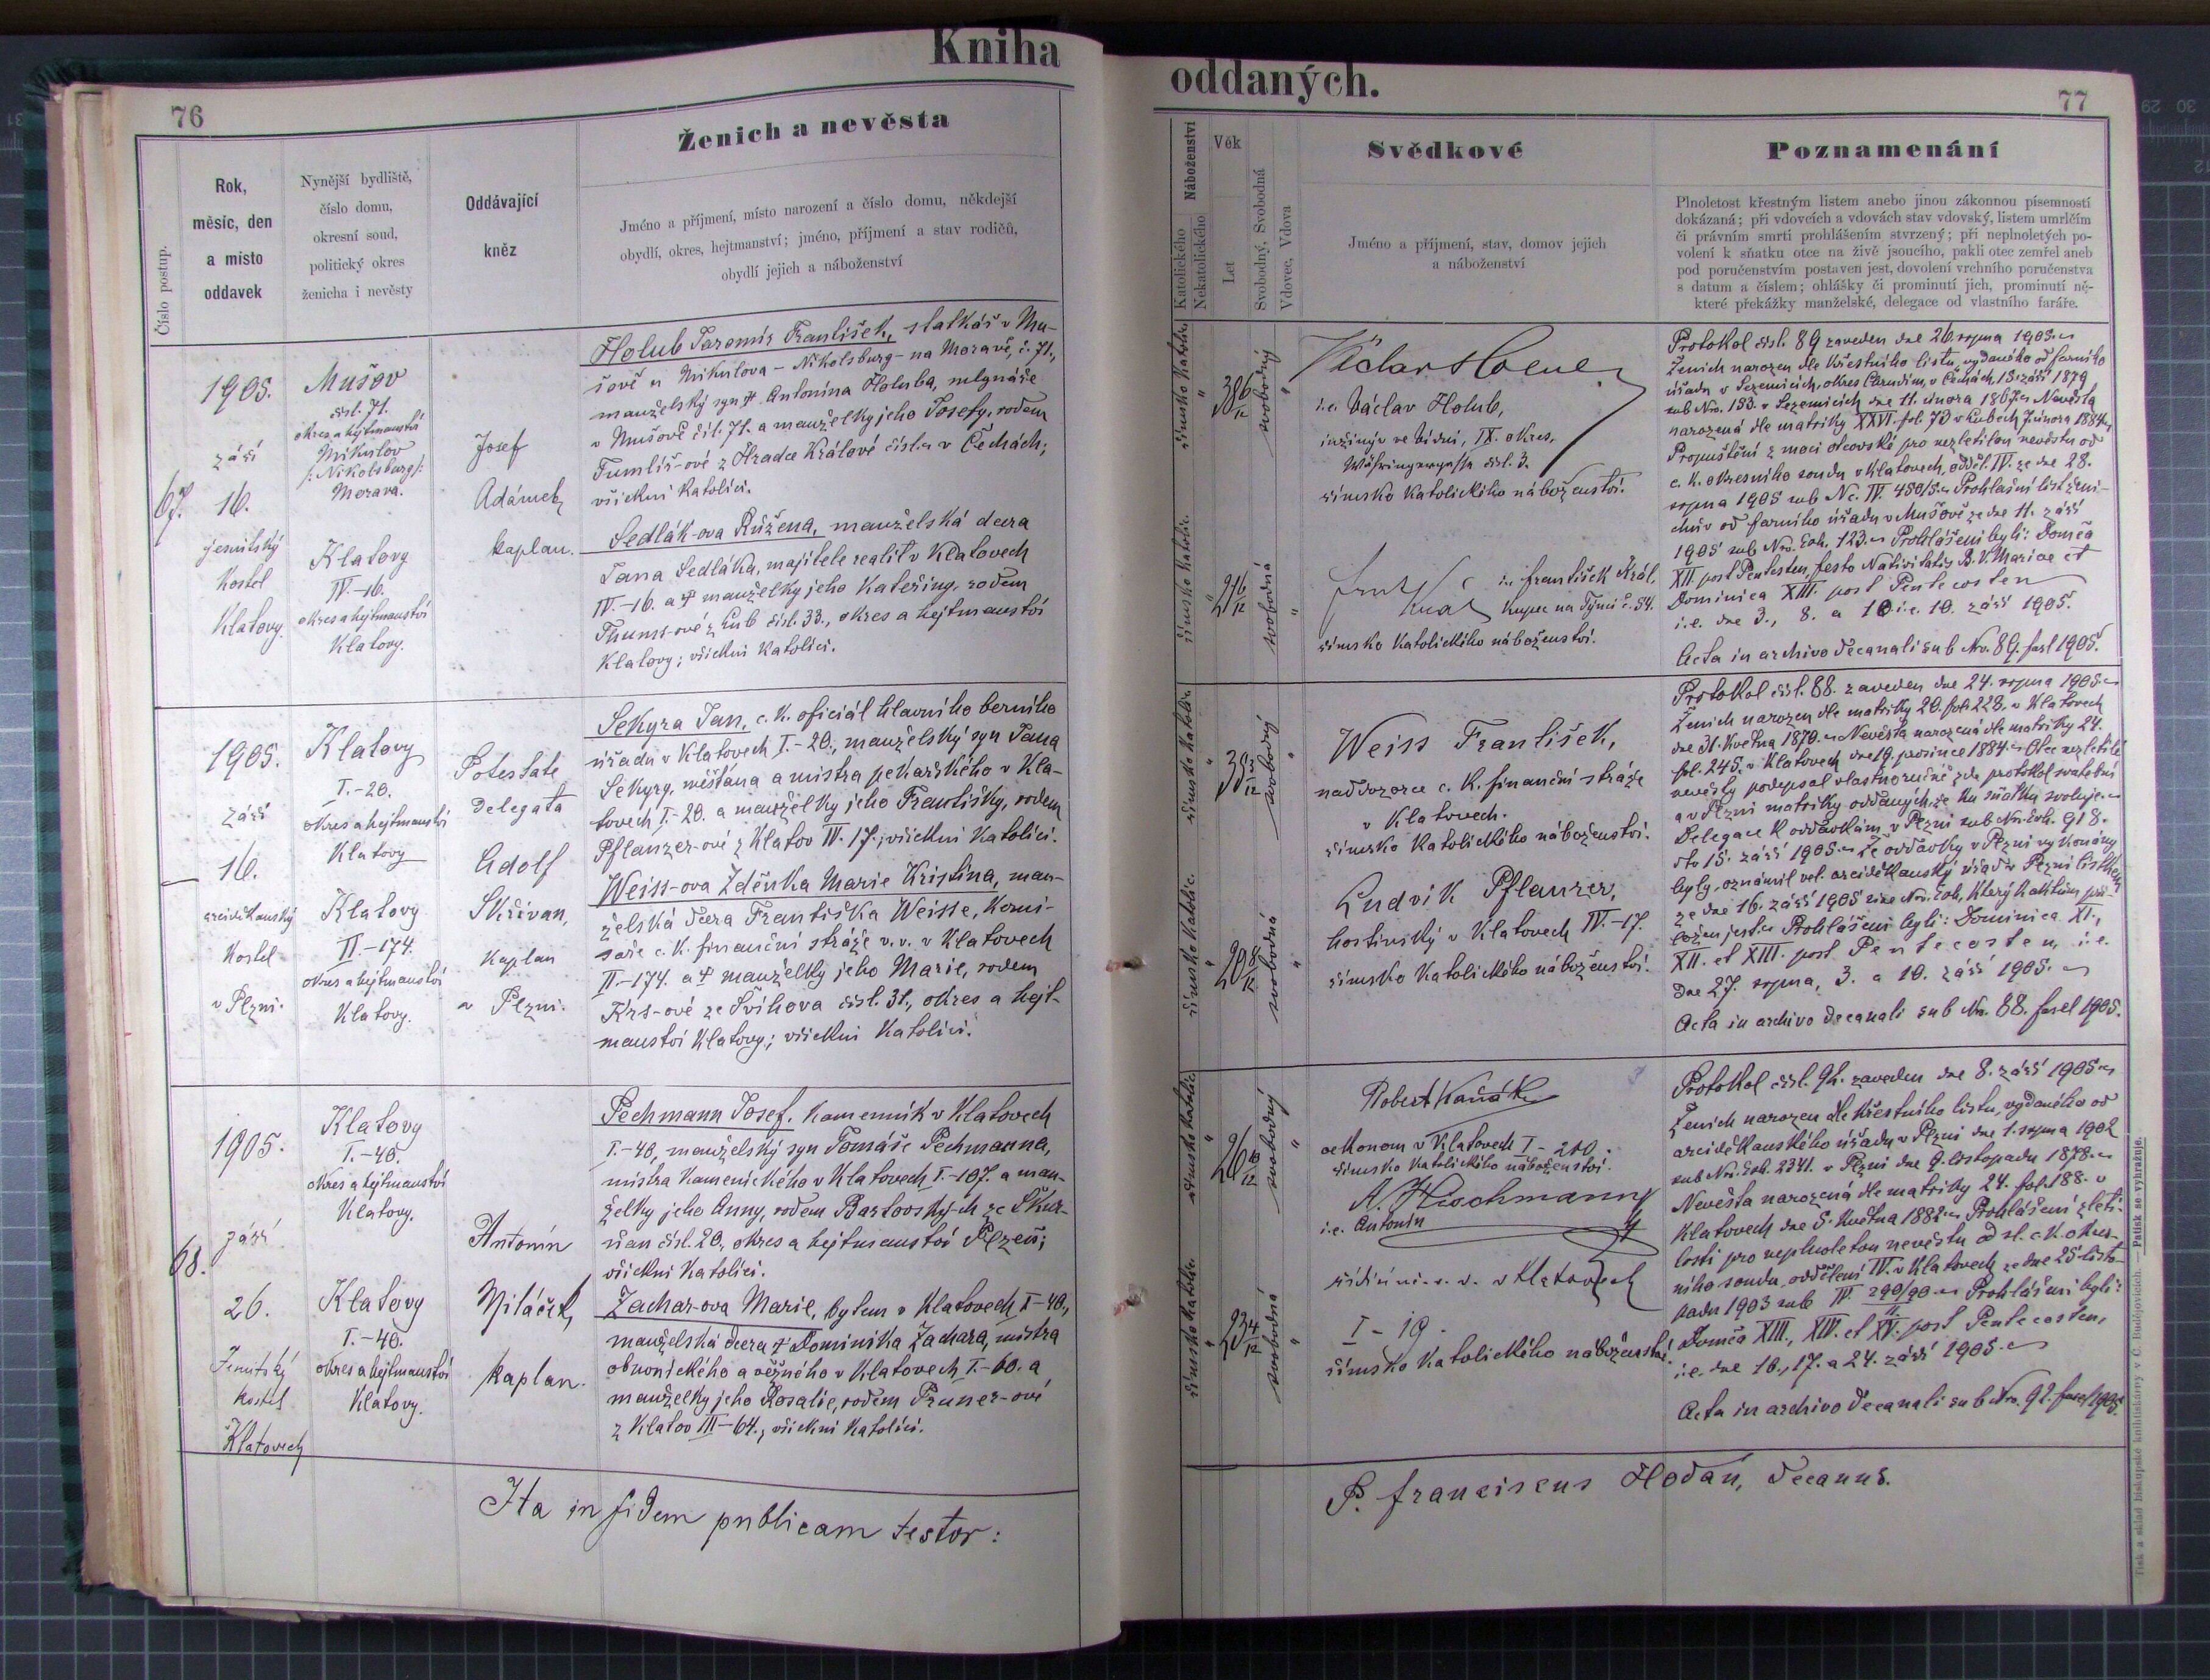 Kniha
76
Číslo postup.
Rok,
měsíc, den
a místo
oddavek
Nynější bydliště,
číslo domu,
okresní soud,
politický okres
ženicha i nevěsty
Oddávající
kněz
Ženich a nevěsta
Jméno a příjmení, místo narození a číslo domu, někdejší
obydlí, okres, hejtmanství; jméno, příjmení a stav rodičů,
obydlí jejich a náboženství
67.
1905.
září
16.
jesuitský
kostel
Klatovy.
Mušov
čísl. 71.
okres a hejtmanství
Mikulov
/:Nikolsburg:/
Morava.
Klatovy
IV.-16.
okres a hejtmanství
Klatovy.
Josef
Adámek,
kaplan.
Holub Jaromír František, statkář v Mu-
šově u Mikulova - Nikolsburg - na Moravě, č. 71.,
manželský syn † Antonína Holuba, mlynáře
v Mušově čísl. 71. a manželky jeho Josefy, rodem
Tumlíř-ové z Hradce Králové čísl. v Čechách;
všickni katolíci.
Sedlák-ova Růžena, manželská dcera
Jana Sedláka, majitele realit v Klatovech
IV.-16. a † manželky jeho Kateřiny, rodem
Thums-ové z Lub čísl. 33., okres a hejtmanství
Klatovy; všickni katolíci.
1905.
září
16.
arciděkanský
kostel
v Plzni.
Klatovy
I.-20.
okres a hejtmanství
Klatovy
Klatovy
II.-174.
okres a hejtmanství
Klatovy.
Potestate
delegata
Adolf
Skřivan,
kaplan
v Plzni.
Sekyra Jan, c. k. oficiál hlavního berního
úřadu v Klatovech I.-20., manželský syn Jana
Sekyry, měšťana a mistra pekařského v Kla-
tovech I.-20. a manželky jeho Františky, rodem
Pflanzer-ové z Klatov IV.-17.; všickni katolíci.
Weiss-ova Zdeňka Marie Kristina, man-
želská dcera Františka Weisse, komi-
saře c. k. finanční stráže v. v. v Klatovech
II.-174. a † manželky jeho Marie, rodem
Krs-ové ze Švihova čísl. 31., okres a hejt-
manství Klatovy; všickni katolíci.
68.
1905.
září
26.
Jesuitský
kostel
Klatovech
Klatovy
I.-40.
okres a hejtmanství
Klatovy.
Klatovy
I.-40.
okres a hejtmanství
Klatovy.
Antonín
Miláček,
kaplan.
Pechmann Josef, kamenník v Klatovech
I.-40, manželský syn Tomáše Pechmanna,
mistra kamenického v Klatovech I.-107. a man-
želky jeho Anny, rodem Bartovský-ch ze Skur-
ňan čísl. 20., okres a hejtmanství Plzeň;
všickni katolíci.
Zachar-ova Marie, bytem v Klatovech I-40,
manželská dcera † Dominika Zachara, mistra
obuvnického a věžného v Klatovech I.-60. a
manželky jeho Rosalie, rodem Pruner-ové
z Klatov III-64., všickni katolíci.
Ita in fidem publicam testor:
oddaných.
77
Náboženství
Katolického
Nekatolického
Věk
Let
Svobodný, Svobodná
Vdovec, Vdova
Svědkové
Jméno a příjmení, stav, domov jejich
a náboženství
Poznamenání
Plnoletost křestným listem anebo jinou zákonnou písemností
dokázaná; při vdovcích a vdovách stav vdovský, listem umrlčím
či právním smrti prohlášením stvrzený; při neplnoletých po-
volení k sňatku otce na živě jsoucího, pakli otec zemřel aneb
pod poručenstvím postaven jest, dovolení vrchního poručenstva
s datum a číslem; ohlášky či prominutí jich, prominutí ně-
které překážky manželské, delegace od vlastního faráře.
římsko katolic.
38 6/12
svobodný
římsko katolic.
21 6/12
svobodná
Václav Holub
i.e. Václav Holub,
inžinýr ve Vídni, IX. okres,
Währingergasse čísl. 3.
římsko katolického náboženství.
Frant Král
i.e. František Král,
kupec na Týnci č. 54.
římsko katolického náboženství.
Protokol čísl. 89 zaveden dne 26. srpna 1905.
Ženich narozen dle křestního listu, vydaného od farního
úřadu v Sezemicích, okres Chrudim, v Čechách, 15. září 1879
sub Nro. 153. v Sezemicích dne 11. února 1867. Nevěsta
narozená dle matriky XXVI. fol. 73 v Lubech 7. února 1884.
Propuštění z moci otcovské pro nezletilou nevěstu od
c. k. okresního soudu v Klatovech, odděl. IV. ze dne 28.
srpna 1905 sub Nc. IV. 450/5. Prohlašní list ženi-
chův od farního úřadu v Mušově ze dne 11. září
1905 sub Nro. Exh. 123. Prohlášeni byli: Domca
XII. post Pentecosten, festo Nativitatis B. V. Mariae et
Dominica XIII. post Pentecosten
i.e. dne 3., 8. a 10 i.e. 10. září 1905.
Acta in archivo decanali sub Nro. 89. fasc 1905.
římsko katolic.
svobodný
římsko katolic.
20 8/12
svobodná
Weiss František,
naddozorce c. k. finanční stráže
v Klatovech.
římsko katolického náboženství.
Ludvík Pflanzer,
hostinský v Klatovech IV.-17.
římsko katolického náboženství.
Protokol čísl. 88. zaveden dne 24. srpna 1905.
Ženich narozen dle matriky 20. fol. 228. v Klatovech
dne 31. května 1870. Nevěsta narozená dle matriky 24.
fol. 245. v Klatovech dne 19. prosince 1884. Otec nezletilé
nevěsty podepsal vlastnoručně zde protokol svatební
a v Plzni matriky oddaných, že ku sňatku svoluje.
Delegace k oddavkám v Plzni sub Nro. Exh. 918.
dto 15. září 1905. Že oddavky v Plzni vykonány
byly, oznámil vel. arciděkanský úřad v Plzni lístkem
ze dne 16. září 1905 sine Nro. Exh., který k aktům při-
ložen jest. Prohlášeni byli: Dominica XI.,
XII. et XIII. post Pentecosten, i.e.
dne 27. srpna, 3. a 10. září 1905.
Acta in archivo decanali sub Nro. 88. fasc 1905.
římsko katolic.
svobodný
římsko katolic.
23 4/12
svobodná
Robert Kaňák
oekonom v Klatovech I-200.
římsko katolického náboženství.
A. Hischmann
i.e. Antonín
řídící uč. v. v. v Klatovech
I-19.
římsko katolického náboženství.
Protokol čísl. 92. zaveden dne 8. září 1905
Ženich narozen dle křestního listu, vydaného od
arciděkanského úřadu v Plzni dne 1. srpna 1902
sub Nro. Exh. 2341. v Plzni dne 9. listopadu 1878.
Nevěsta narozená dle matriky 24. fol. 188. v
Klatovech dne 5. května 1882. Prohlášení zleti-
losti pro neplnoletou nevěstu od sl. c. k. okres-
ního soudu, oddělení IV. v Klatovech ze dne 25 listo-
padu 1903 sub IV. 290/90. Prohlášeni byli:
Domca XIII., XIV. et XV. post Pentecosten,
i.e. dne 10., 17. a 24. září 1905.
Acta in archivo decanali sub Nro. 92. fasc 1905.
P. Franciscus Hodáň, decanus.
Tisk a sklad biskupské knihtiskárny v Č. Budějovicích. — Patisk se vyhražuje.